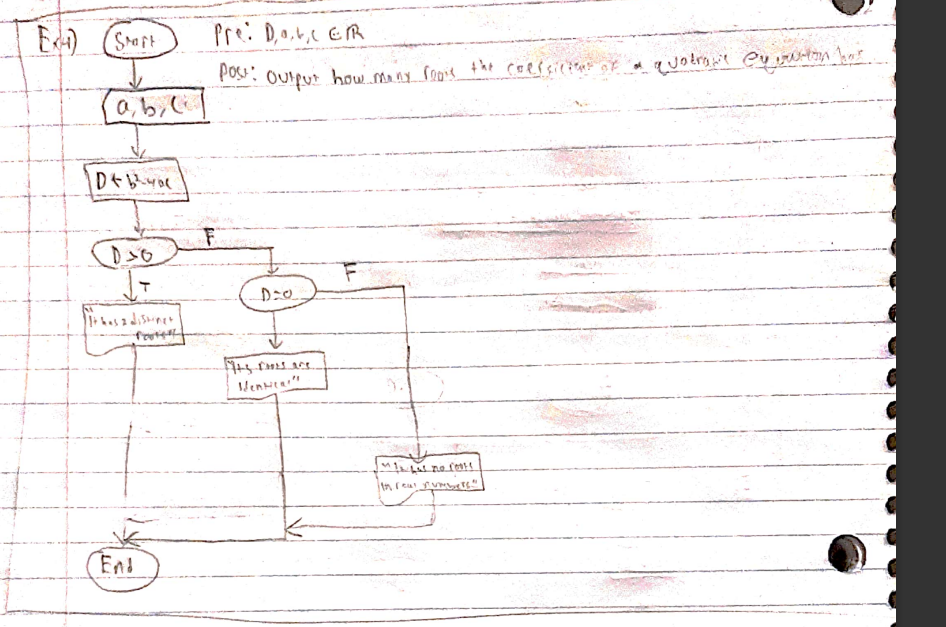 Ex4) Start Pre: D,a,b,c ∈ ℝ
Post: Output how many roots the coefficient of a quadratic equation has
a, b, c
D ← b²-4ac
D>0 F
T
D=0 F
"It has 2 distinct
roots"
"Its roots are
Identical"
"It has no roots
In real numbers"
End